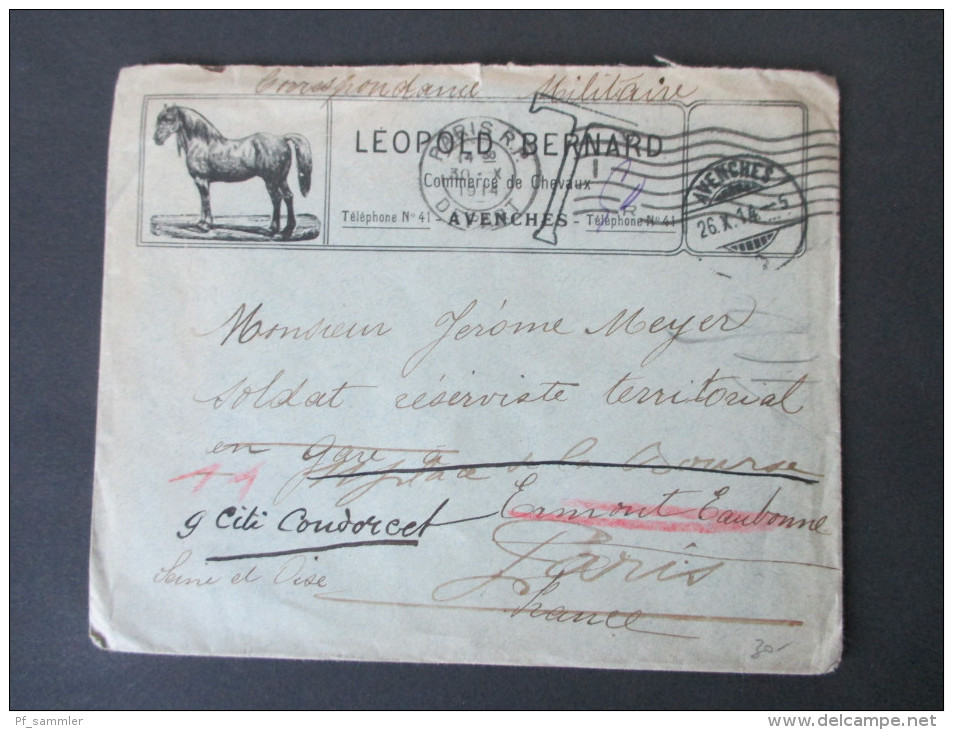 Correspondance Militaire
LÉOPOLD BERNARD
Commerce de Chevaux
Téléphone No 41 - AVENCHES - Téléphone No 41
PARIS R.P.
14 30
30 - X
1914
DEPART
T
AVENCHES
26.X.14.-5
Monsieur Jérôme Meyer
soldat réserviste territorial
en gare
de la Bourse
Ermont Eaubonne
9 Citi Condorcet
Paris
Seine et Oise
France
30-
Pf_sammler
www.delcampe.net